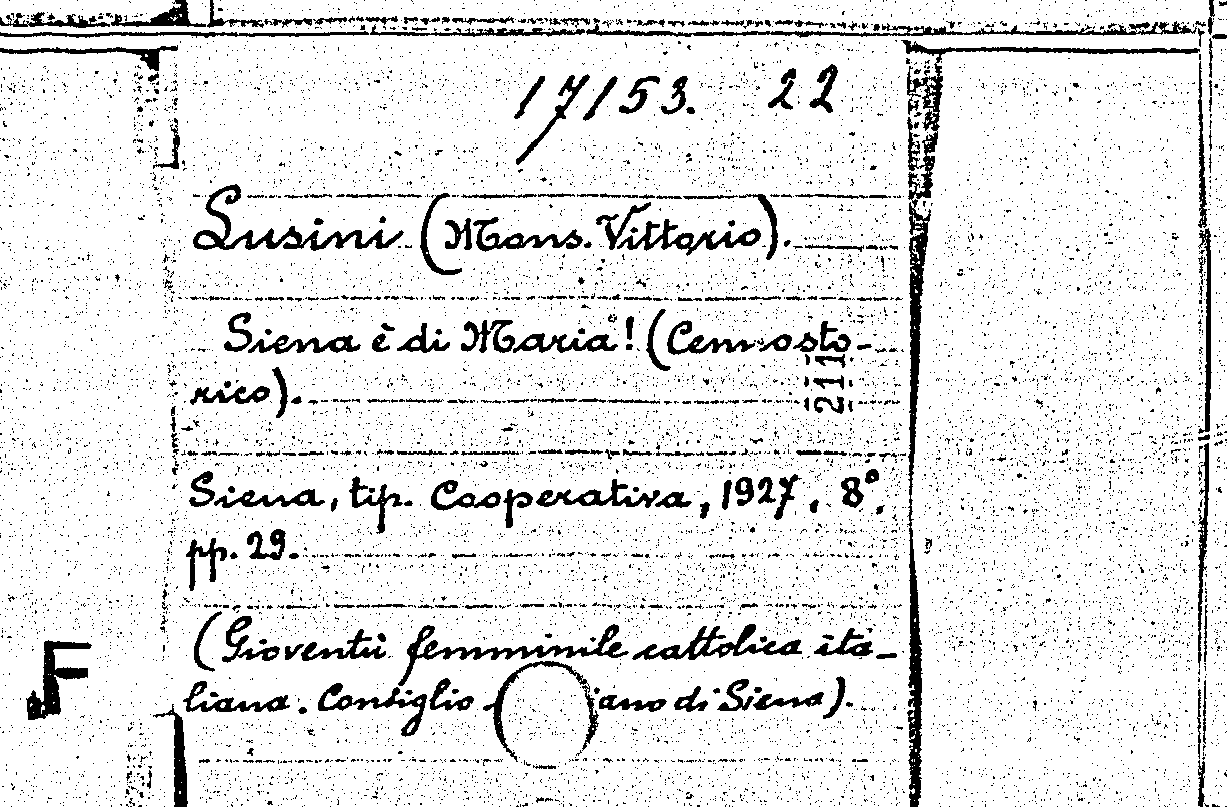 17153. 22
Lusini (Mons. Vittorio).
Siena è di Maria! (Cenno sto-
rico).
211
Siena, tip. Cooperativa, 1927, 8°,
pp. 29.
(Gioventù femminile cattolica ita-
liana. Consiglio iano di Siena).
F